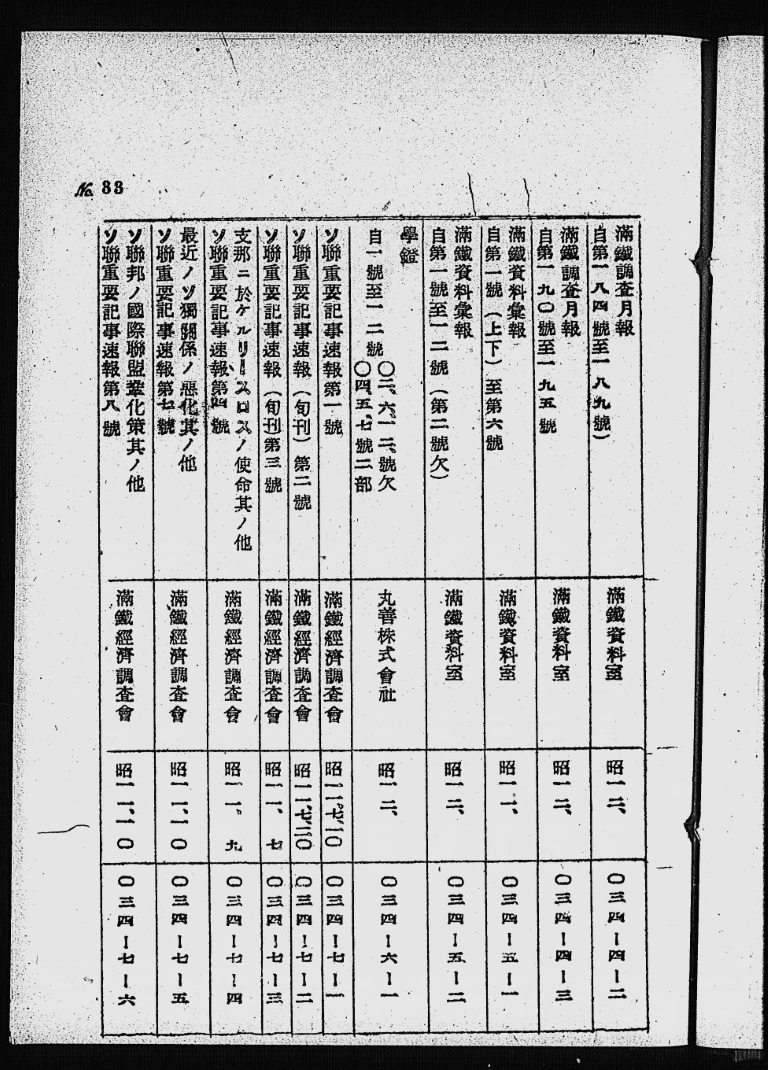 No. 33
滿鐵調査月報
自第一八四號至一八九號)
滿鐵資料室
昭一二、
〇三四ー四ー二
滿鐵調査月報
自第一九〇號至一九五號
滿鐵資料室
昭一二、
〇三四ー四ー三
滿鐵資料彙報
自第一號(上下)至第六號
滿鐵資料室
昭一一、
〇三四ー五ー一
滿鐵資料彙報
自第一號至一二號(第二號欠)
滿鐵資料室
昭一二、
〇三四ー五ー二
學鐙
自一號至一二號
〇二、六、一二、號欠
〇四、五、七號二部
丸善株式會社
昭一二、
〇三四ー六ー一
ソ聯重要記事速報第一號
滿鐵經濟調査會
昭一一、七、一〇
〇三四ー七ー一
ソ聯重要記事速報(旬刊)第二號
滿鐵經濟調査會
昭一一、七、二〇
〇三四ー七ー二
ソ聯重要記事速報(旬刊第三號
滿鐵經濟調査會
昭一一、七
〇三四ー七ー三
支那ニ於ケルリースロスノ使命其ノ他
ソ聯重要記事速報第四號
滿鐵經濟調査會
昭一一。九
〇三四ー七ー四
最近ノソ獨關係ノ惡化其ノ他
ソ聯重要記事速報第七號
滿鐵經濟調査會
昭一一、一〇
〇三四ー七ー五
ソ聯邦ノ國際聯盟鞏化策其ノ他
ソ聯重要記事速報第八號
滿鐵經濟調査會
昭一一、一〇
〇三四ー七ー六